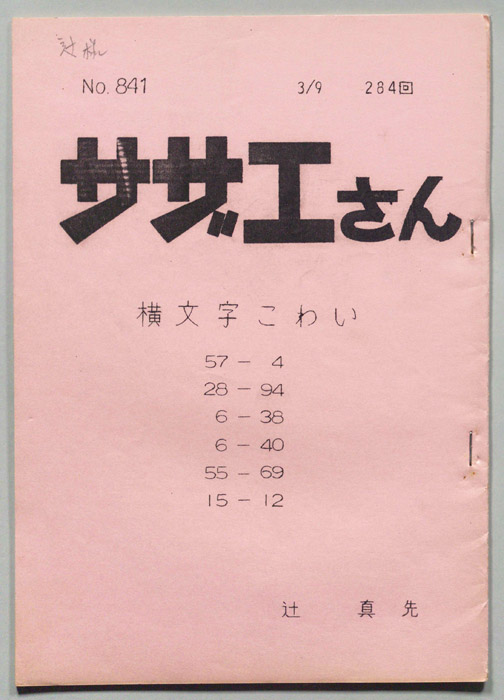 辻様
No. 841 3/9 284回
サザエさん
横文字こわい
57 - 4
28 - 94
6 - 38
6 - 40
55 - 69
15 - 12
辻 真先